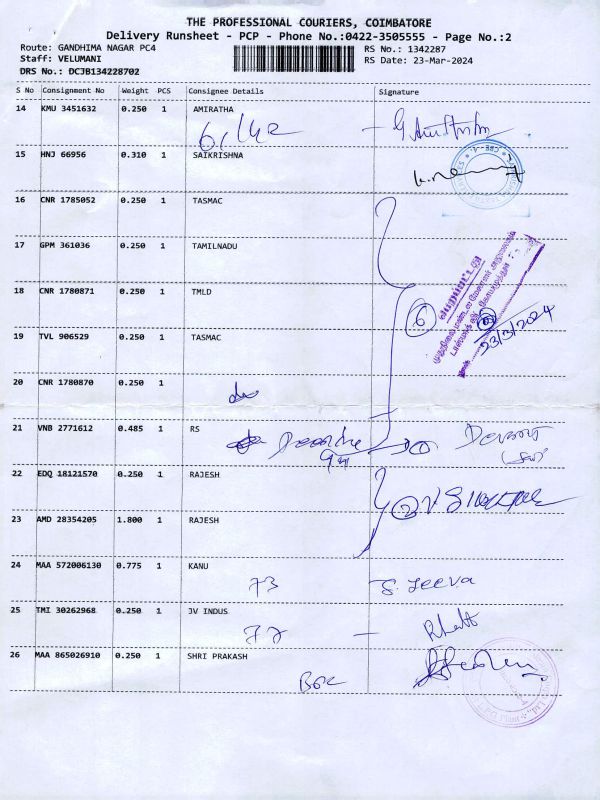 THE PROFESSIONAL COURIERS, COIMBATORE
Delivery Runsheet - PCP - Phone No.:0422-3505555 - Page No.:2
Route: GANDHIMA NAGAR PC4 RS No.: 1342287
Staff: VELUMANI RS Date: 23-Mar-2024
DRS No.: DCJB134228702
S No Consignment No Weight PCS Consignee Details Signature
14 KMU 3451632 0.250 1 AMIRATHA
15 HNJ 66956 0.310 1 SAIKRISHNA
16 CNR 1785052 0.250 1 TASMAC
17 GPM 361036 0.250 1 TAMILNADU
18 CNR 1780871 0.250 1 TMLD
6
23/3/2024
19 TVL 906529 0.250 1 TASMAC
20 CNR 1780870 0.250 1
21 VNB 2771612 0.485 1 RS
22 EDQ 18121570 0.250 1 RAJESH
2
23 AMD 28354205 1.800 1 RAJESH
24 MAA 572006130 0.775 1 KANU
73 S. Jeeva
25 TMI 30262968 0.250 1 JV INDUS
77
26 MAA 865026910 0.250 1 SHRI PRAKASH